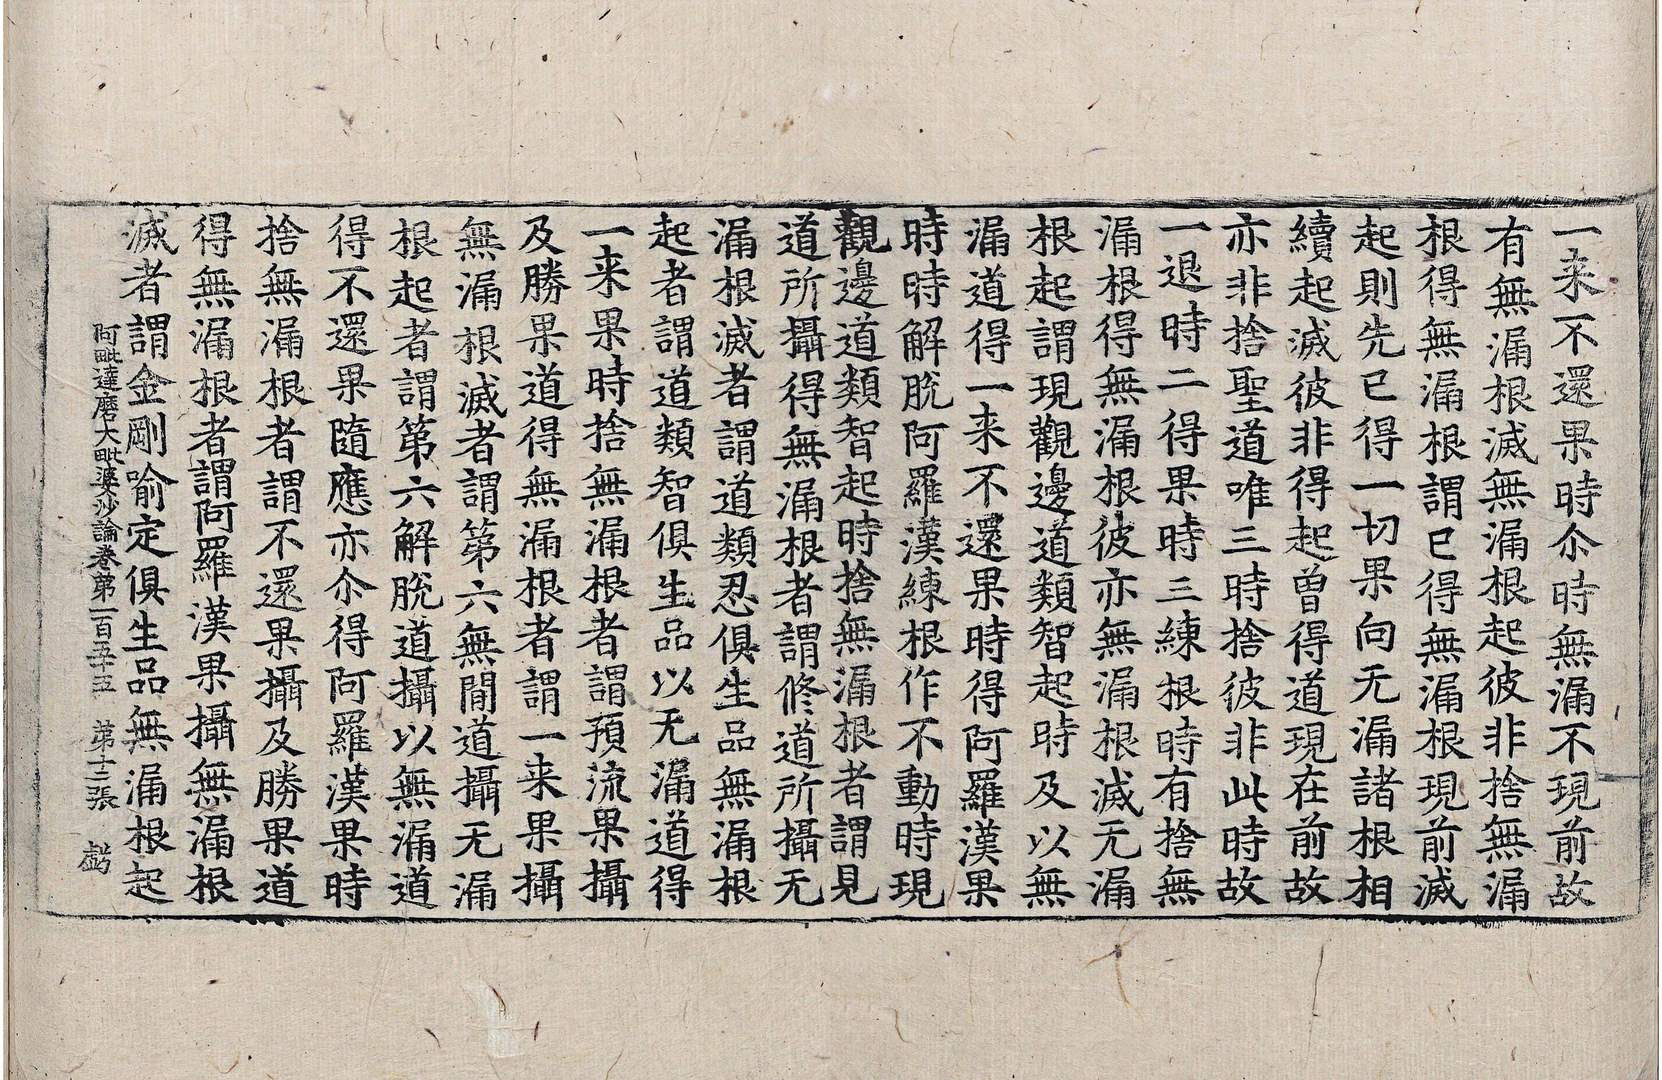 一来不還果時尒時無漏不現前故
有無漏根滅無漏根起彼非捨無漏
根得無漏根謂已得無漏根現前滅
起則先已得一切果向无漏諸根相
續起滅彼非得起曽得道現在前故
亦非捨聖道唯三時捨彼非此時故
一退時二得果時三練根時有捨無
漏根得無漏根彼亦無漏根滅无漏
根起謂現觀邊道類智起時及以無
漏道得一来不還果時得阿羅漢果
時時解脫阿羅漢練根作不動時現
觀邊道類智起時捨無漏根者謂見
道所攝得無漏根者謂修道所攝无
漏根滅者謂道類忍俱生品無漏根
起者謂道類智俱生品以无漏道得
一来果時捨無漏根者謂預流果攝
及勝果道得無漏根者謂一来果攝
無漏根滅者謂第六無間道攝无漏
根起者謂第六解脫道攝以無漏道
得不還果隨應亦尒得阿羅漢果時
捨無漏根者謂不還果攝及勝果道
得無漏根者謂阿羅漢果攝無漏根
滅者謂金剛喻定俱生品無漏根起
阿毗達磨大毗婆沙論卷第一百五十五 第十三張